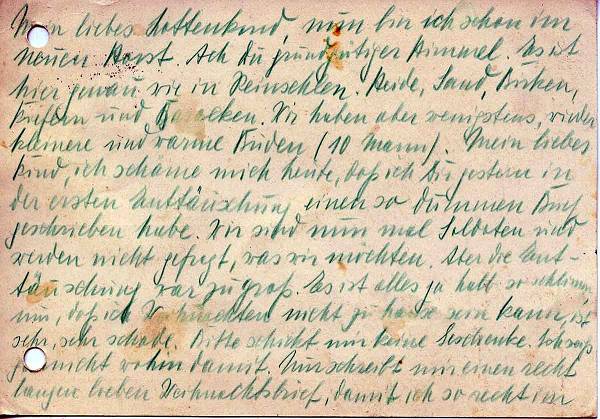 Mein liebes Lottenkind, nun bin ich schon im
neuen Horst. Ach Du grundgütiger Himmel. Es ist
hier genau wie in Reinsehlen. Heide, Sand, Birken,
Kiefern und Baracken. Wir haben aber wenigstens, wieder
kleinere und warme Buden (10 Mann). Mein liebes
Kind, ich schäme mich heute, daß ich Dir gestern in
der ersten Enttäuschung einen so dummen Brief
geschrieben habe. Wir sind nun mal Soldaten und
werden nicht gefragt, was wir möchten. Aber die Ent-
täuschung war zu groß. Es ist alles ja halb so schlimm,
nur, daß ich Weihnachten nicht zu hause sein kann, ist
sehr, sehr schade. Bitte schickt mir keine Geschenke. Ich weiß
gar nicht wohin damit. Nur schreibt mir einen recht
langen lieben Weihnachtsbrief, damit ich so recht im